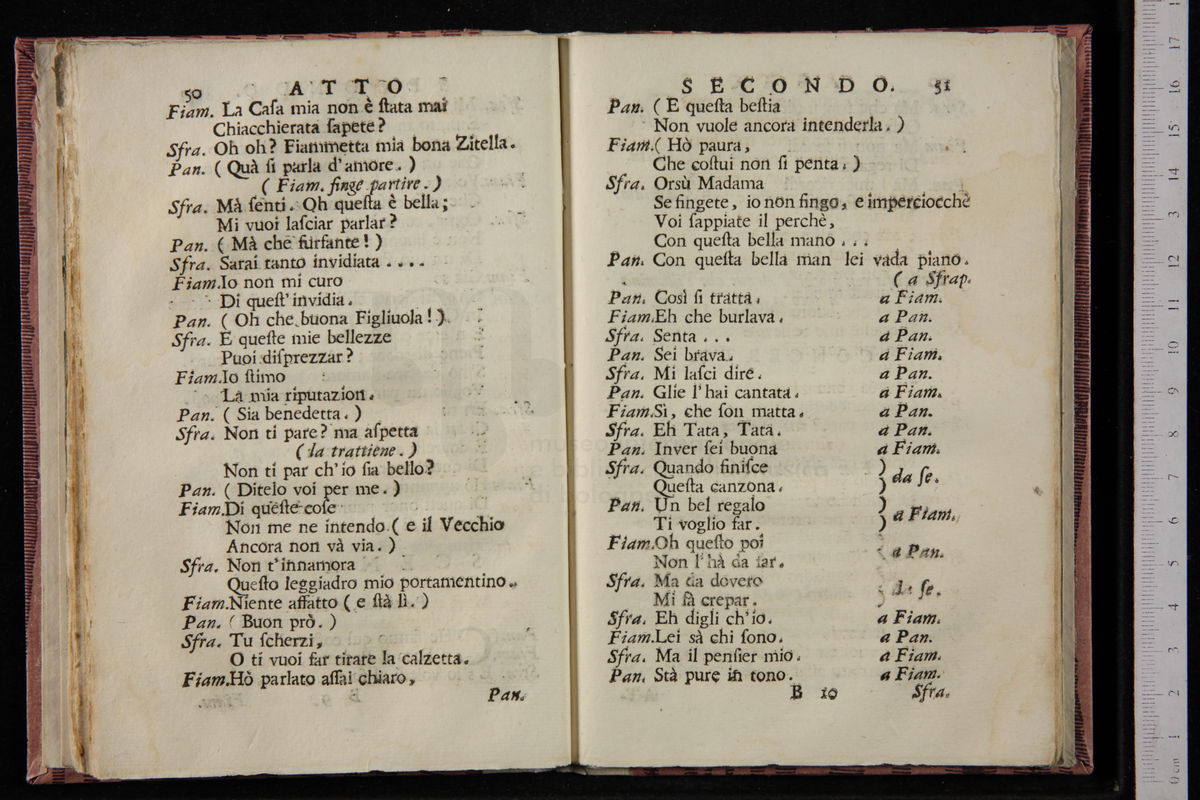 50 ATTO
Fiam. La Caſa mia non è ſtata mai
Chiacchierata ſapete?
Sfra. Oh oh? Fiammetta mia bona Zitella.
Pan. ( Quà ſi parla d'amore. )
( Fiam. finge partire. )
Sfra. Mà ſenti. Oh queſta è bella;
Mi vuoi laſciar parlar?
Pan. ( Mà che furfante! )
Sfra. Sarai tanto invidiata . . . .
Fiam. Io non mi curo
Di queſt'invidia.
Pan. ( Oh che buona Figliuola! )
Sfra. E queſte mie bellezze
Puoi diſprezzar?
Fiam. Io ſtimo
La mia riputazion.
Pan. ( Sia benedetta. )
Sfra. Non ti pare? ma aſpetta
( la trattiene. )
Non ti par ch'io ſia bello?
Pan. ( Ditelo voi per me. )
Fiam. Di queſte coſe
Non me ne intendo ( e il Vecchio
Ancora non và via. )
Sfra. Non t'innamora
Queſto leggiadro mio portamentino.
Fiam. Niente affatto ( e ſtà lì. )
Pan. ( Buon prò. )
Sfra. Tu ſcherzi,
O ti vuoi far tirare la calzetta.
Fiam. Hò parlato aſſai chiaro,
Pan.
SECONDO. 51
Pan. ( E queſta beſtia
Non vuole ancora intenderla. )
Fiam. ( Hò paura,
Che coſtui non ſi penta. )
Sfra. Orsù Madama
Se fingete, io non fingo, e imperciocchè
Voi ſappiate il perchè,
Con queſta bella mano . . .
Pan. Con queſta bella man lei vada piano.
( a Sfrap.
Pan. Così ſi tratta. a Fiam.
Fiam. Eh che burlava. a Pan.
Sfra. Senta . . . a Pan.
Pan. Sei brava. a Fiam.
Sfra. Mi laſci dire. a Pan.
Pan. Glie l'hai cantata. a Fiam.
Fiam. Sì, che ſon matta. a Pan.
Sfra. Eh Tata, Tata. a Pan.
Pan. Inver ſei buona a Fiam.
Sfra. Quando finiſce
Queſta canzona. ) da ſe.
Pan. Un bel regalo
Ti voglio far. ) a Fiam.
Fiam. Oh queſto poi
Non l'hà da far. a Pan.
Sfra. Ma da dovero
Mi fà crepar. } da ſe.
Sfra. Eh digli ch'io. a Fiam.
Fiam. Lei sà chi ſono. a Pan.
Sfra. Ma il penſier mio. a Fiam.
Pan. Stà pure in tono. a Fiam.
B 10 Sfra.